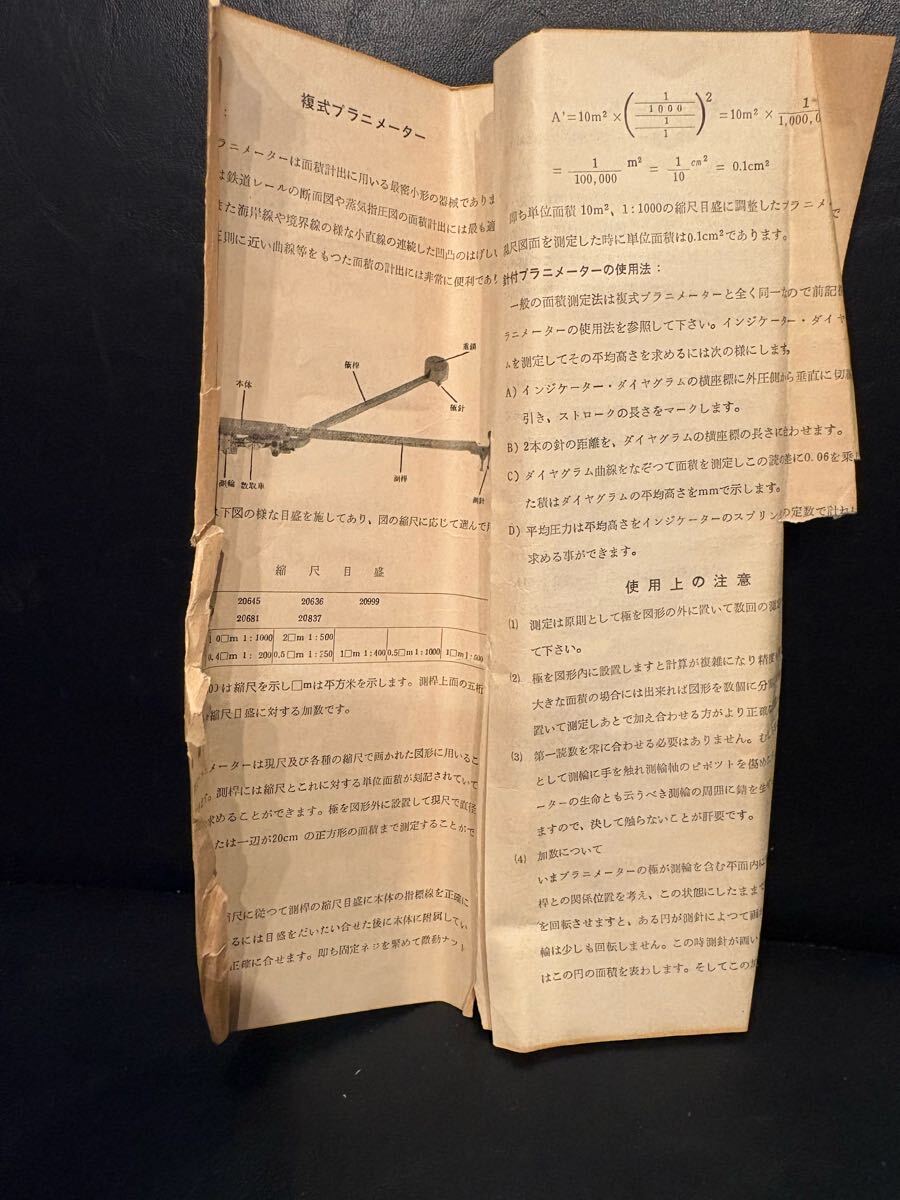 複式プラニメーター
ラニメーターは面積計出に用いる最密小形の器械であります
は鉄道レールの断面図や蒸気指圧図の面積計出には最も適
また海岸線や境界線の様な小直線の連続した凹凸のはげしい
三則に近い曲線等をもつた面積の計出には非常に便利であり
重錘
極桿
極針
本体
測輪 数取車
測桿
測針
は下図の様な目盛を施してあり、図の縮尺に応じて選んで
縮尺目盛
20645 20636 20999
20681 20837
1 0□m 1:1000 2□m 1:500
0.4□m 1: 200 0.5□m 1:250 1□m 1:400 0.5□m 1:1000 1□m 1:500
00は縮尺を示し□mは平方米を示します。測桿上面の五桁
縮尺目盛に対する加数です。
ニメーターは現尺及び各種の縮尺で画かれた図形に用いるこ
ます。測桿には縮尺とこれに対する単位面積が刻記されていて
求めることができます。極を図形外に設置して現尺で直径
たは一辺が20cm の正方形の面積まで測定することがで
尺に従つて測桿の縮尺目盛に本体の指標線を正確に
るには目盛をだいたい合せた後に本体に附属してい
正確に合せます。即ち固定ネジを緊めて微動ナット
A'=10m² ×(1/1000 / 1/1)² =10m² × 1/1,000,0
= 1/100,000 m² = 1/10 cm² = 0.1cm²
即ち単位面積 10m²、1:1000の縮尺目盛に調整したプラニメーで
現尺図面を測定した時に単位面積は0.1cm²であります。
針付プラニメーターの使用法:
一般の面積測定法は複式プラニメーターと全く同一なので前記
ラニメーターの使用法を参照して下さい。インジケーター・ダイヤ
ムを測定してその平均高さを求めるには次の様にします。
A) インジケーター・ダイヤグラムの横座標に外圧側から垂直に切線
引き、ストロークの長さをマークします。
B) 2本の針の距離を、ダイヤグラムの横座標の長さに合わせます。
C) ダイヤグラム曲線をなぞつて面積を測定しこの読み差に0.06を乗
た積はダイヤグラムの平均高さをmmで示します。
D) 平均圧力は平均高さをインジケーターのスプリングの定数で計れば
求める事ができます。
使用上の注意
(1) 測定は原則として極を図形の外に置いて数回の測定
て下さい。
(2) 極を図形内に設置しますと計算が複雑になり精度
大きな面積の場合には出来れば図形を数個に分
置いて測定しあとで加え合わせる方がより正確
(3) 第一読数を零に合わせる必要はありません。む
として測輪に手を触れ測輪軸のピボツトを傷め
ーターの生命とも云うべき測輪の周囲に錆を生
ますので、決して触らないことが肝要です。
(4) 加数について
いまプラニメーターの極が測輪を含む平面内に
桿との関係位置を考え、この状態にしたままで
を回転させますと、ある円が測針によつて画
輪は少しも回転しません。この時測針が画い
はこの円の面積を表わします。そしてこの加